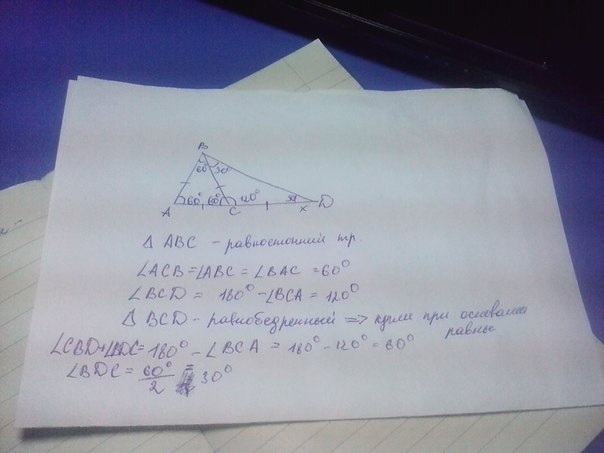 B
60° 30°
A 60° 60° C 120° x D
Δ ABC - равностонний тр.
∠ACB = ∠ABC = ∠BAC = 60°
∠BCD = 180° - ∠BCA = 120°
Δ BCD - равнобедренный => при основании
равны
∠CBD+∠BDC = 180° - ∠BCA = 180° - 120° = 60°
∠BDC = 60°/2 = 30°